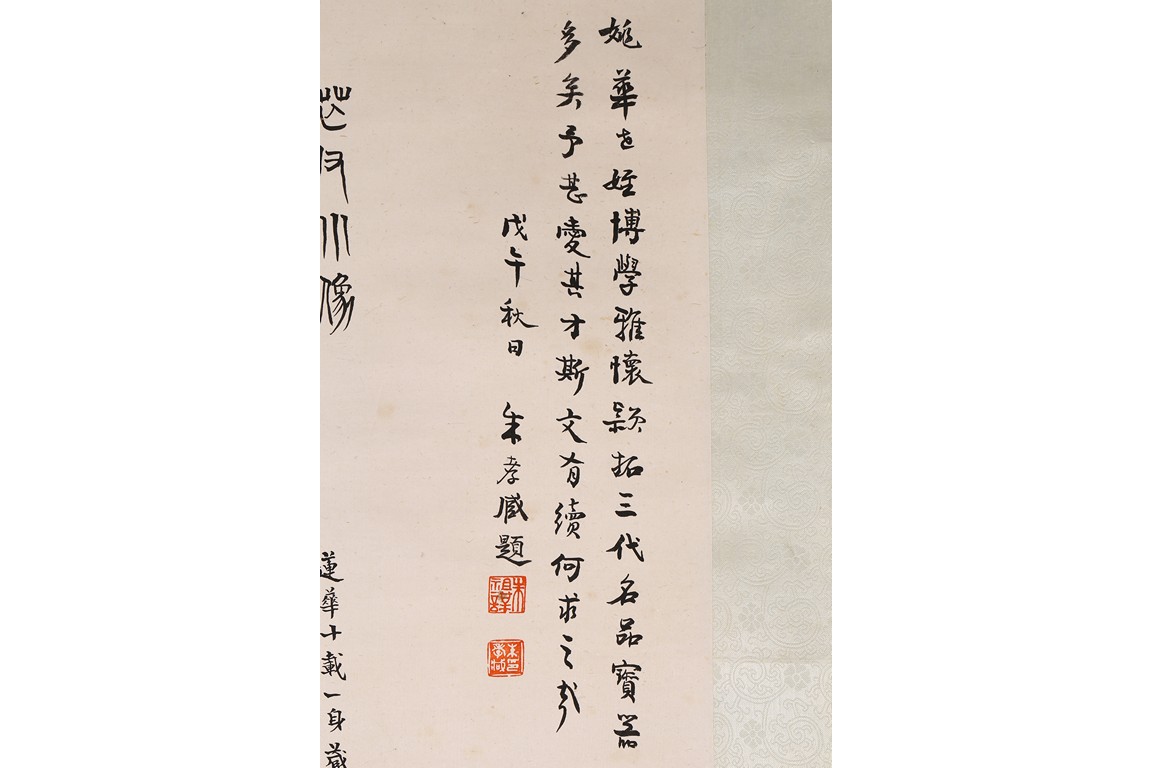 姚華世姪博學雅懷穎拓三代名品寶器
多矣予甚愛其才斯文有續何求之哉
戊午秋日 朱孝臧題
朱祖謀
像
蓮華十載一身藏